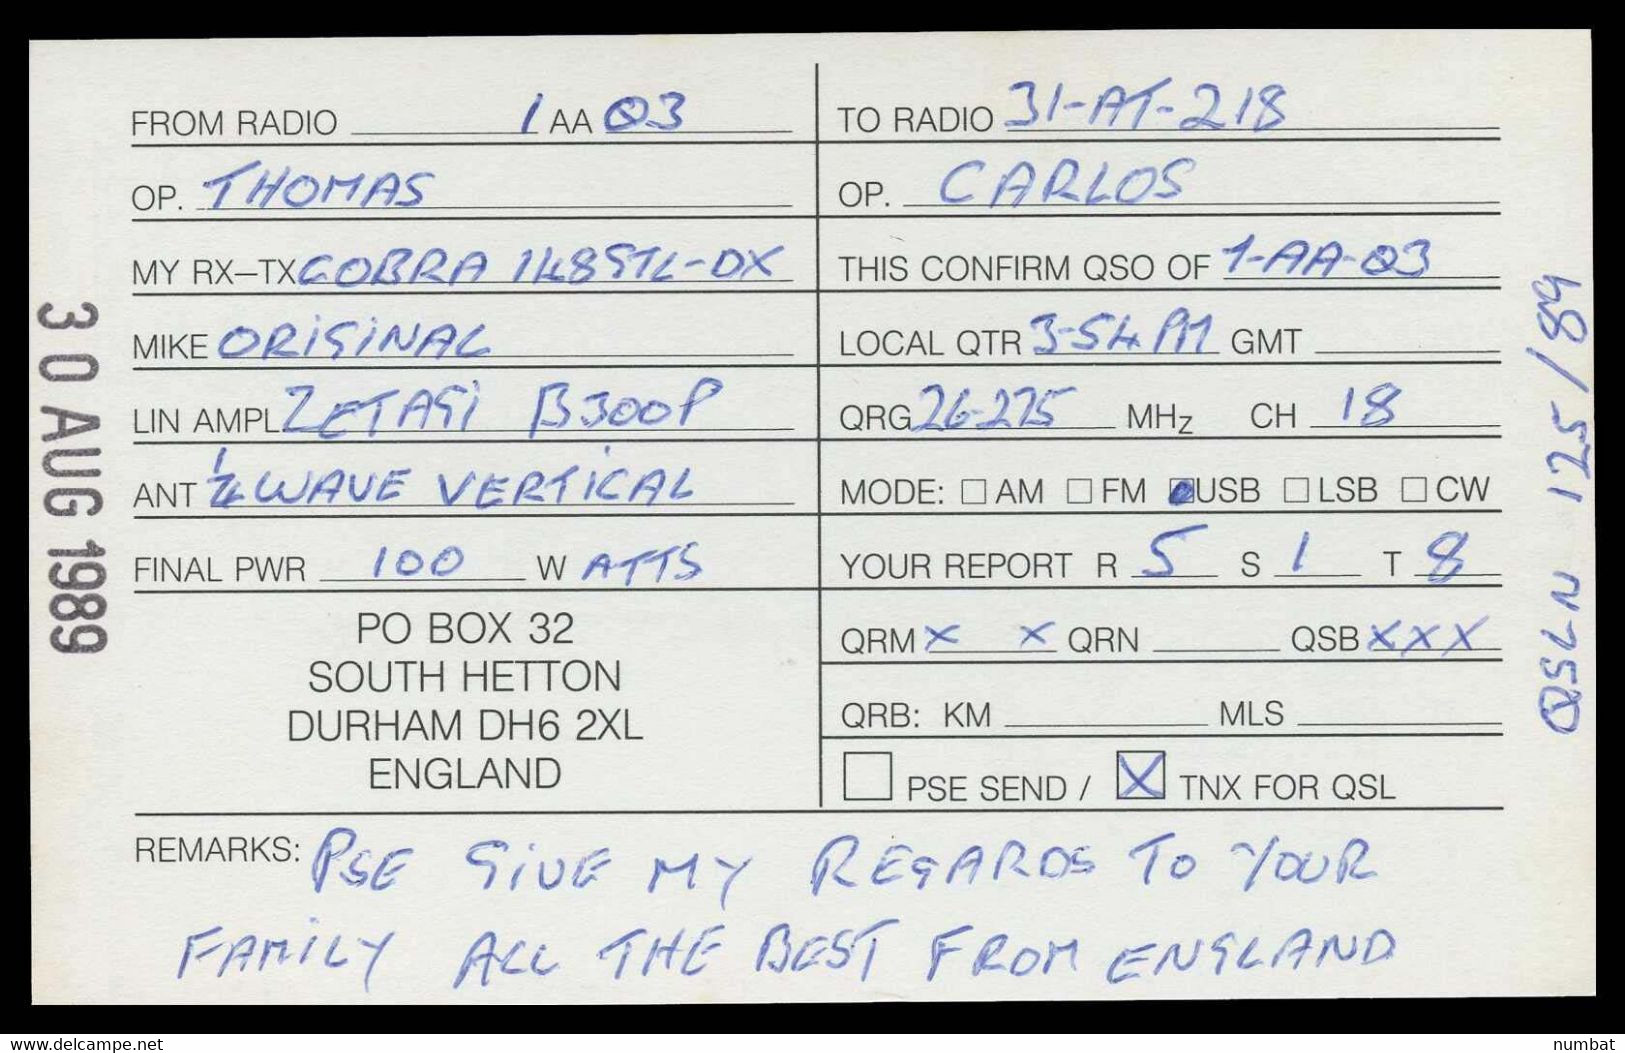 FROM RADIO 1 AA 03
OP. THOMAS
MY RX–TX COBRA 148 GTL-DX
MIKE ORIGINAL
LIN AMPL ZETAGI B300P
ANT 1/4 WAVE VERTICAL
FINAL PWR 100 W ATTS
PO BOX 32
SOUTH HETTON
DURHAM DH6 2XL
ENGLAND
TO RADIO 31-AT-218
OP. CARLOS
THIS CONFIRM QSO OF 1-AA-03
LOCAL QTR 3-54 PM GMT
QRG 26-225 MHz CH 18
MODE: AM FM USB LSB CW
YOUR REPORT R 5 S 1 T 8
QRM X X QRN QSB XXX
QRB: KM MLS
PSE SEND / X TNX FOR QSL
REMARKS: PSE GIVE MY REGARDS TO YOUR
FAMILY ALL THE BEST FROM ENGLAND
30 AUG 1989
QSL N 125/89
www.delcampe.net
numbat